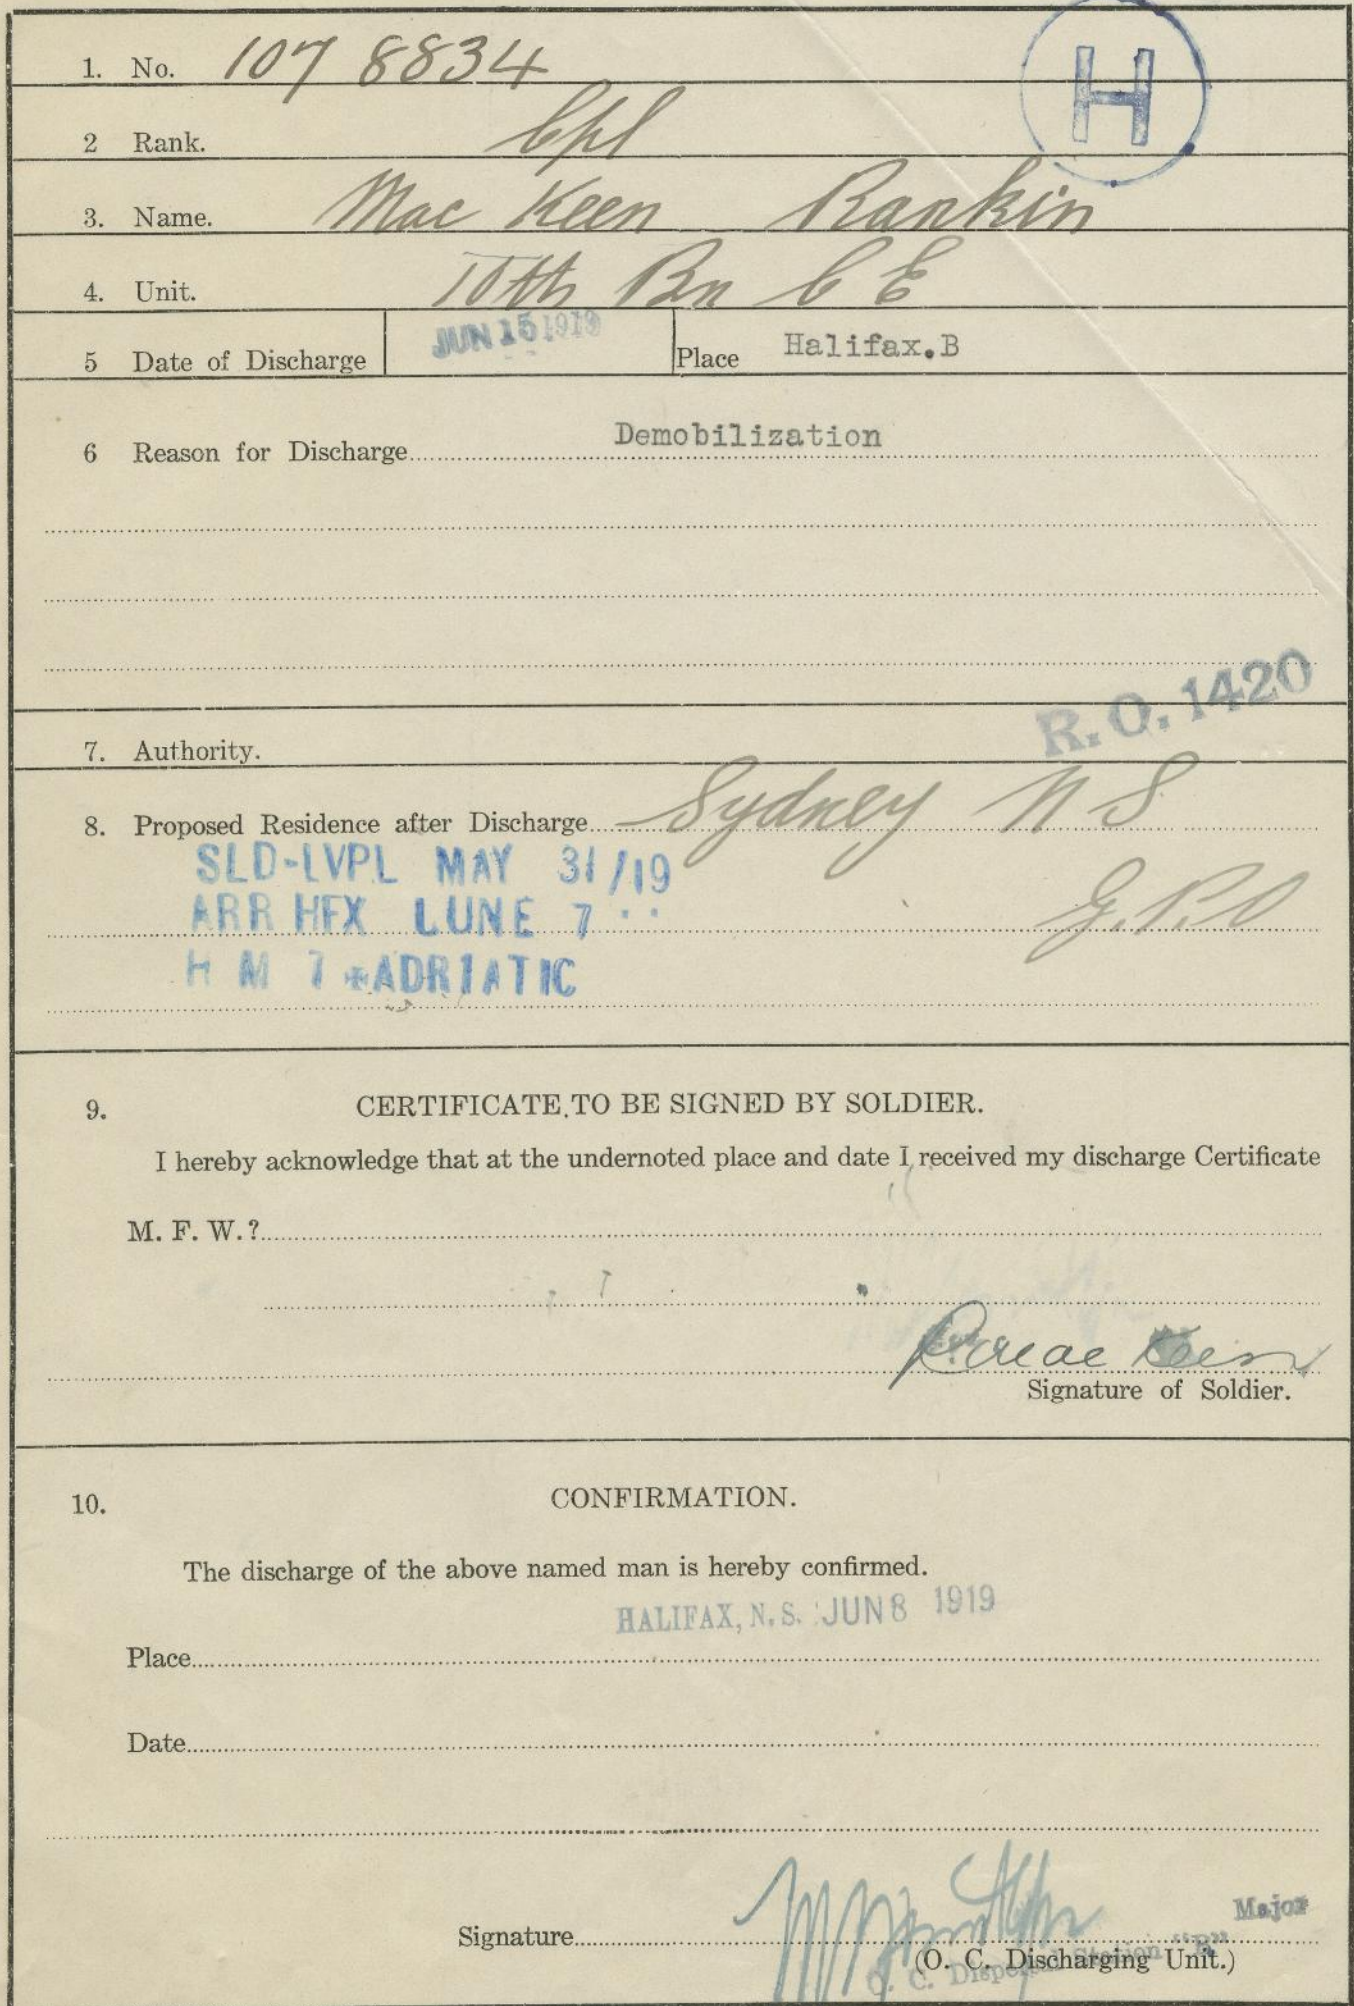 1. No. 107 8834
H
2 Rank. Cpl
3. Name. Mac Keen Rankin
4. Unit. 10th Bn C E
5 Date of Discharge JUN 15 1919 Place Halifax.B
6 Reason for Discharge Demobilization
R.O. 1420
7. Authority.
8. Proposed Residence after Discharge Sydney N S
SLD-LVPL MAY 31/19
G.P.O
ARR HFX LUNE 7 ··
H M 7 ADRIATIC
9. CERTIFICATE TO BE SIGNED BY SOLDIER.
I hereby acknowledge that at the undernoted place and date I received my discharge Certificate
M. F. W.?
Keen
Signature of Soldier.
10. CONFIRMATION.
The discharge of the above named man is hereby confirmed.
HALIFAX, N.S. JUN 8 1919
Place
Date
Major
Signature
(O. C. Discharging Unit.)
O. C. Dispersal Station "B"